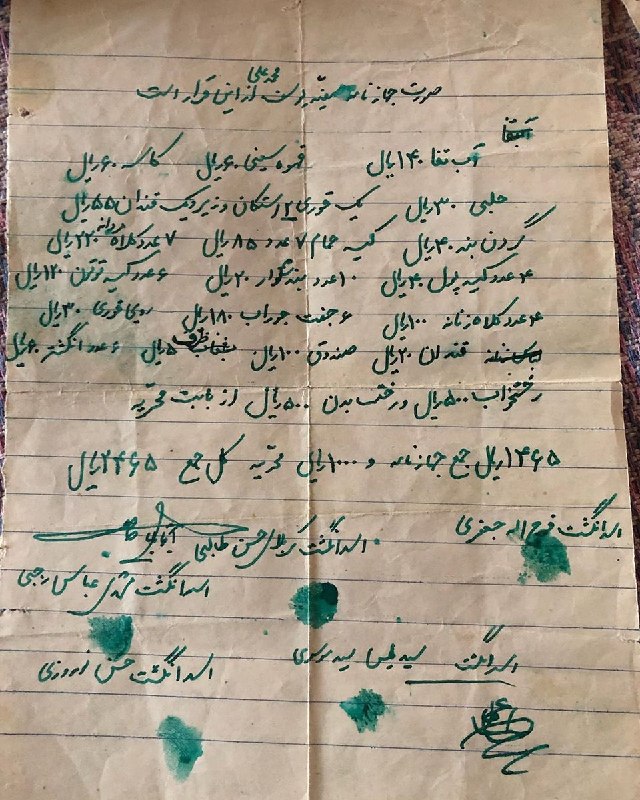 محمدعلی
صورت جهازنامه سیده از این قرار است
آب تفا ۱۴۰ ریال قهوه سینی ۶۰ ریال کاسه ۶۰ ریال
حلبی ۳۰ ریال یک قوری ۲ استکان و زیر و یک قندان ۵۵ ریال
گردن بند ۴۰ ریال کیسه حمام ۷ عدد ۸۵ ریال ۷ عدد کلاه مردانه ۲۲۰ ریال
۴ عدد کیسه پول ۴۰ ریال ۱۰ عدد بند شلوار ۲۰ ریال ۶ عدد کیسه توتون ۱۲۰ ریال
۴ عدد کلاه زنانه ۱۰۰ ریال ۶ جفت جوراب ۱۸۰ ریال روی قوری ۳۰ ریال
قندان ۲۰ ریال صندوق ۱۰۰ ریال ۵ ریال ۶ عدد انگشتر ۶۰ ریال
رختخواب ۵۰۰ ریال و رخت بدن ۵۰۰ ریال از بابت مهریه
۱۴۶۵ ریال جمع جهازنامه و ۱۰۰۰ ریال مهریه کل جمع ۲۴۶۵ ریال
اثر انگشت فرج اله جعفری
اثر انگشت کربلائی حسن طالبی
اثر انگشت عباس رجبی
اثر انگشت سید
اثر انگشت حسن نوروزی